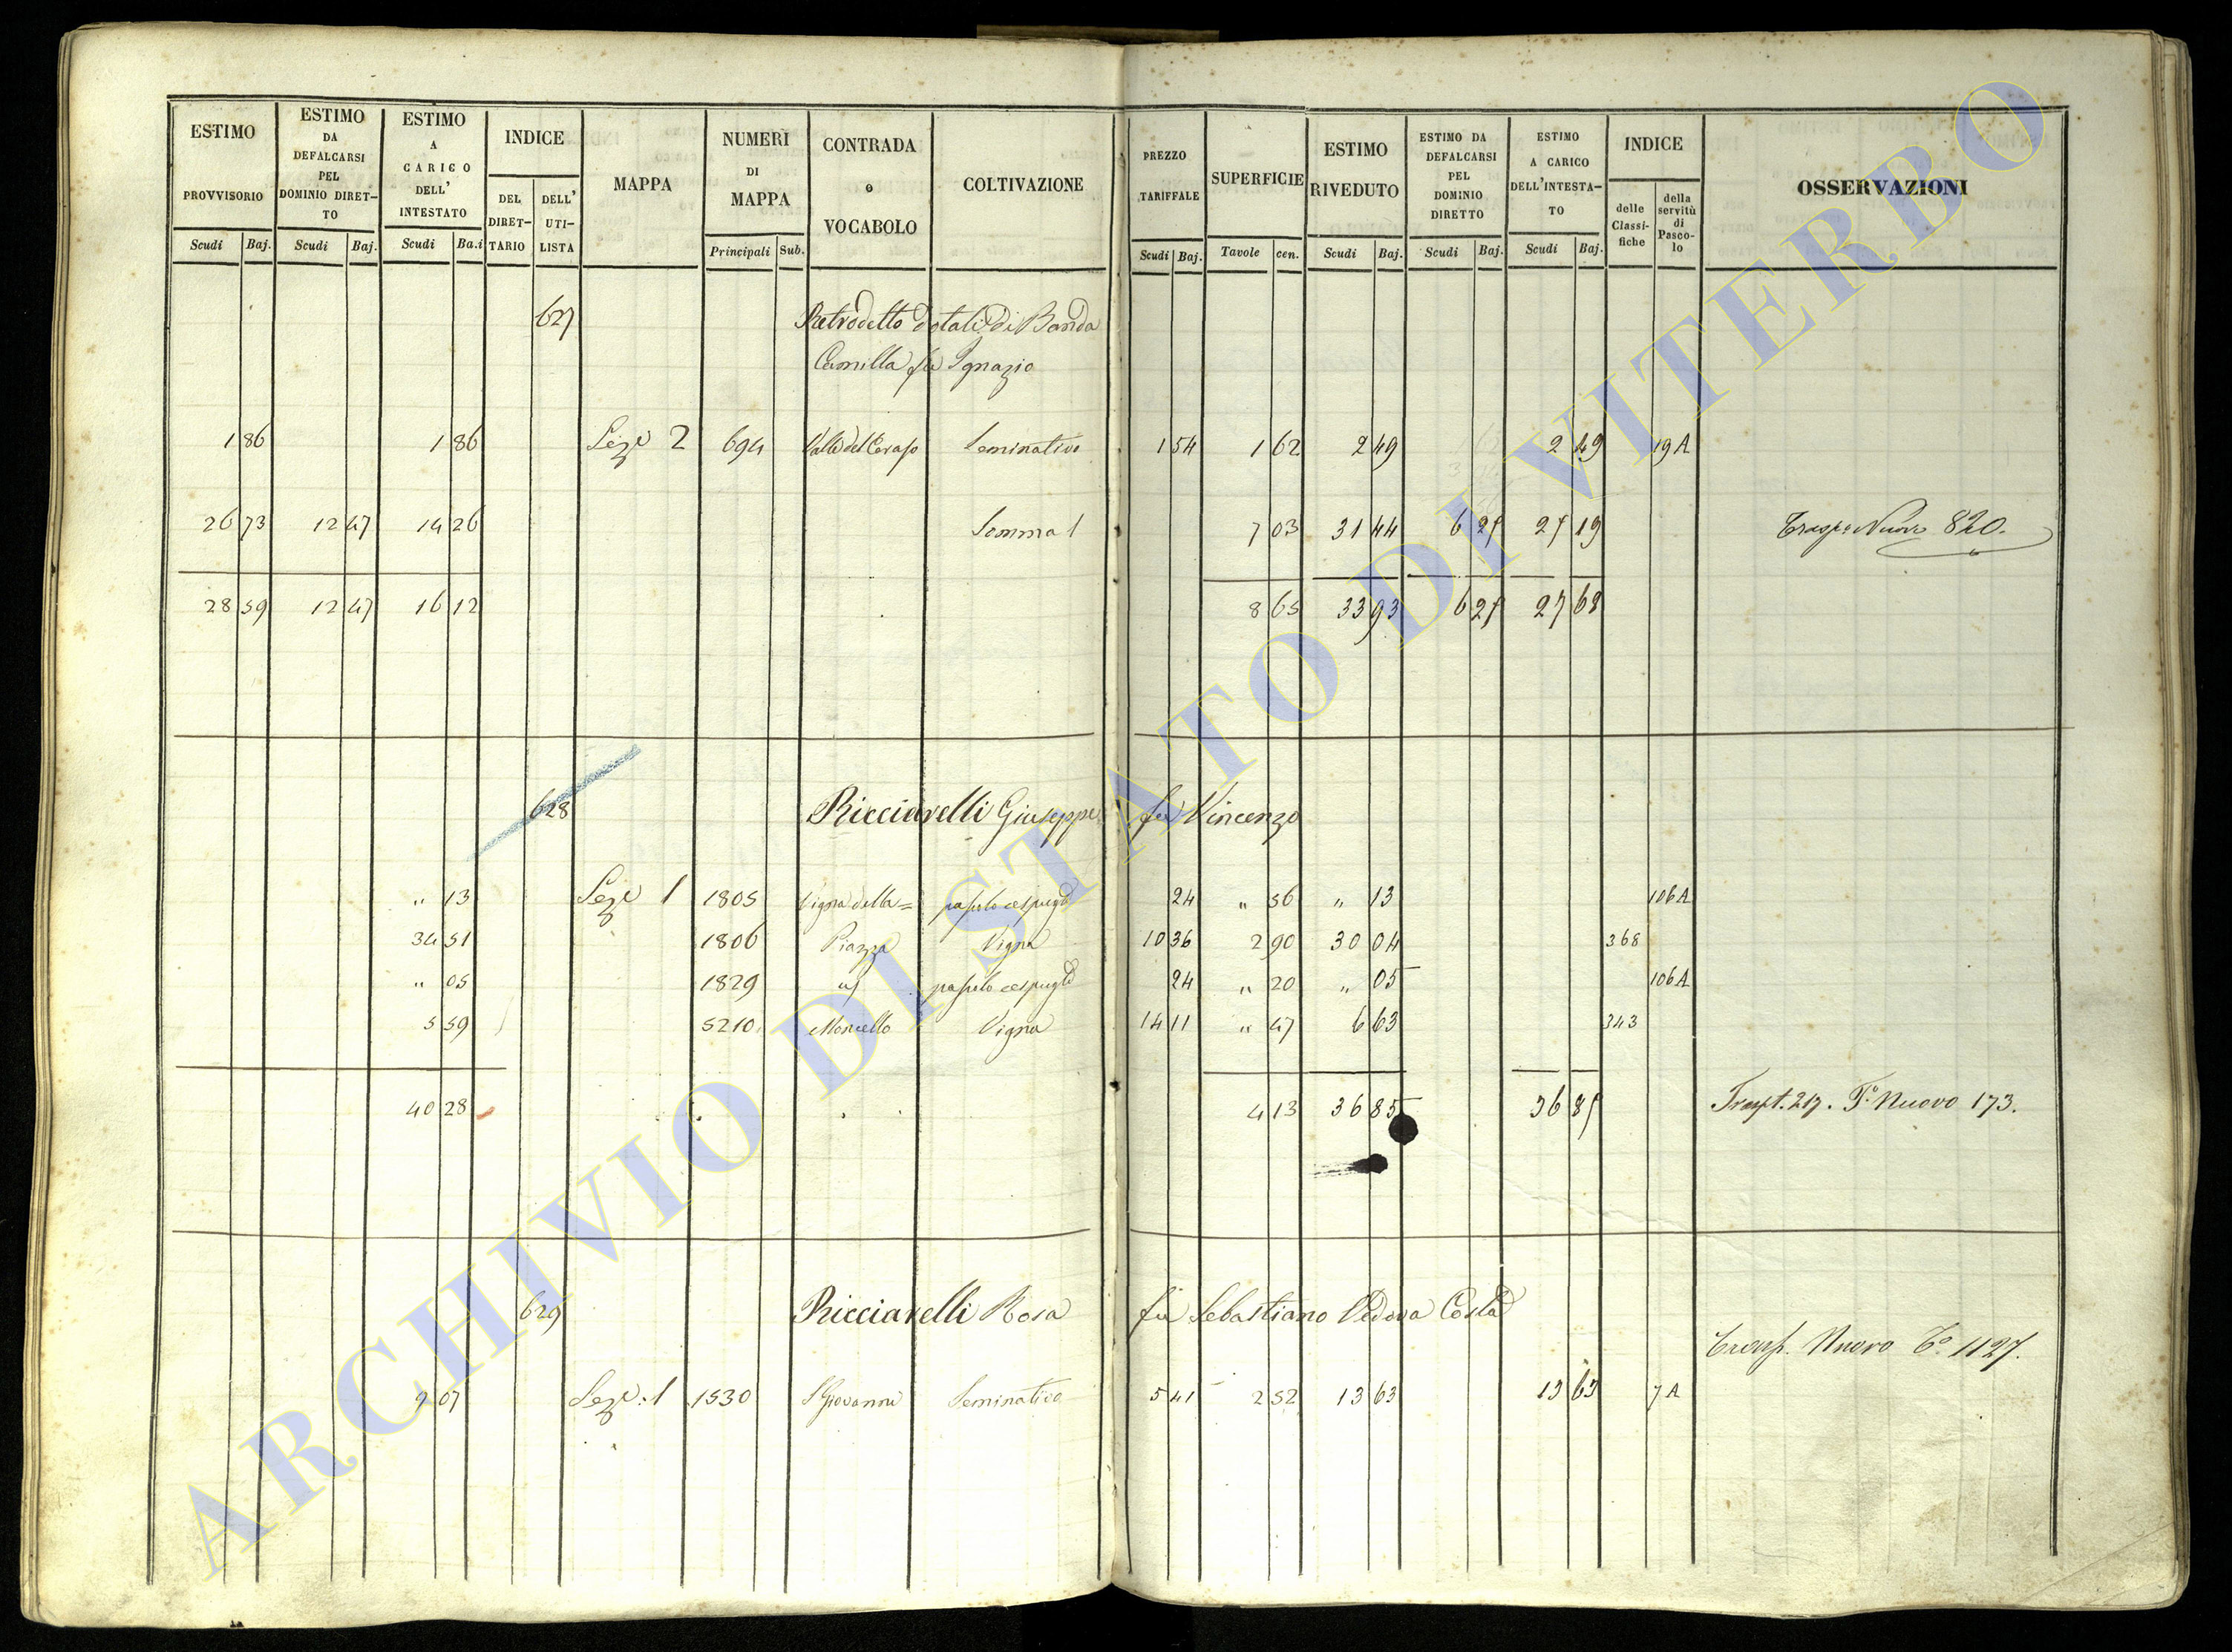 ESTIMO PROVVISORIO Scudi Baj.
ESTIMO DA DEFALCARSI PEL DOMINIO DIRET-TO Scudi Baj.
ESTIMO A CARICO DELL' INTESTATO Scudi Ba.i
INDICE DEL DIRET-TARIO DELL' UTI-LISTA
MAPPA
NUMERI DI MAPPA Principali Sub.
CONTRADA o VOCABOLO
COLTIVAZIONE
PREZZO TARIFFALE Scudi Baj.
SUPERFICIE Tavole cen.
ESTIMO RIVEDUTO Scudi Baj.
ESTIMO DA DEFALCARSI PEL DOMINIO DIRETTO Scudi Baj.
ESTIMO A CARICO DELL'INTESTA-TO Scudi Baj.
INDICE delle Classi-fiche della servitù di Pasco-lo
OSSERVAZIONI
627 Retrodetto dotali di Banda
Camilla fu Ignazio
1 86 1 86 Seze 2 694 Valle del Ceraso Seminativo 1 54 1 62 2 49 2 49 19 A
26 73 12 47 14 26 Somma 1 7 03 31 44 6 25 25 19 Trasp. Nuovo 820.
28 59 12 47 16 12 8 65 33 93 6 25 27 68
628 Ricciarelli Giuseppe fu Vincenzo
" 13 Seze 1 1805 Vigna della= pascolo cespugl 24 " 56 " 13 106 A
34 51 1806 Piazza Vigna 10 36 2 90 30 04 368
" 05 1829 pascolo cespugl 24 " 20 " 05 106 A
5 59 5210 Moncello Vigna 14 11 " 47 6 63 343
40 28 4 13 36 85 36 85 Traspt. 217. To Nuovo 173.
629 Ricciarelli Rosa fu Sebastiano Vedova Costa
Trasp. Nuovo To 1127.
9 07 Seze: 1 1530 S Giovanni Seminativo 5 41 2 52 13 63 13 63 7 A
ARCHIVIO DI STATO DI VITERBO